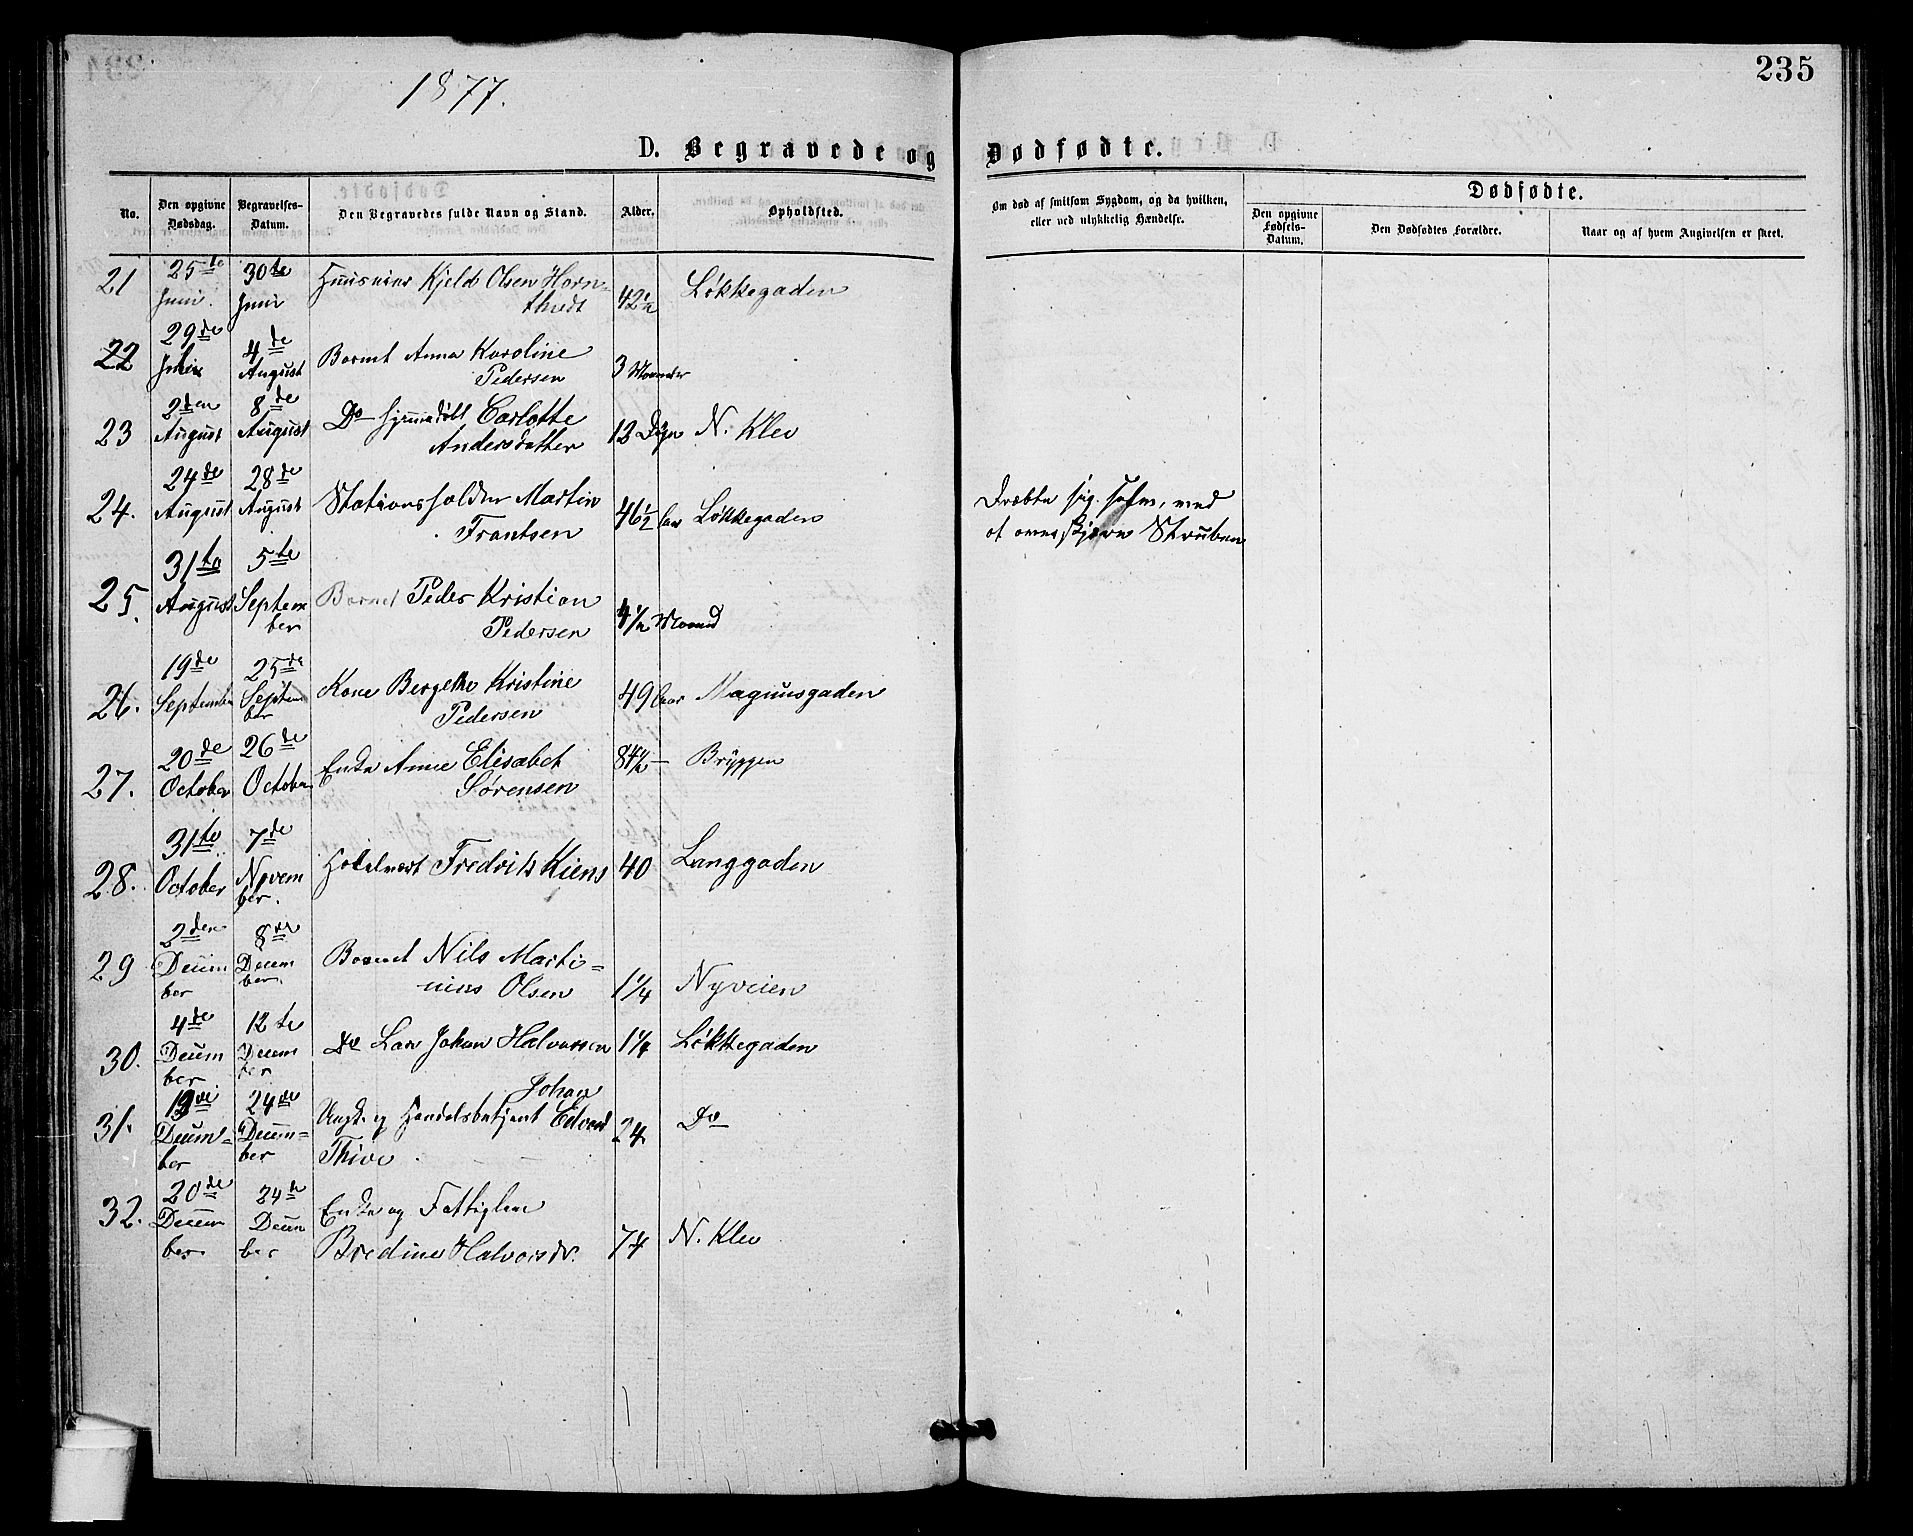 235
1877.
D. Begravede og Dødfødte.
No.
Den opgivne Dødsdag.
Begravelses-Datum.
Den Begravedes fulde Navn og Stand.
Alder.
Opholdsted.
Om død af smitsom Sygdom, og da hvilken, eller ved ulykkelig Hændelse.
Dødfødte.
Den opgivne Fødsels-Datum.
Den Dødfødtes Forældre.
Naar og af hvem Angivelsen er skeet.
21 25te Juni. 30te Juni Kjeld Olsen Horn= 42½ Løkkegaden
22 29de 4de August Barnet Anna Karoline Pedersen 3 Maaneder
23 2den August 8de August Do hjemmedøbt Carlotte Andersdatter 12 Døgn N. Klev
24. 24de August 28de August Stationsholder Martin Frantsen 46½ Aar Løkkegaden Dræbte sig selv, ved at overskjære Struben
25. 31te August 5te September Barnet Peder Kristian Pedersen 4½ Maaned
26. 19de September 25de September Kone Bergethe Kristine Pedersen 49 Aar Magnusgaden
27. 20de October 26de October Enke Anne Elisabet Sørensen 84½ — Bryggen
28. 31te October 7de November. Hotelvært Fredrik Kiens 40 Langgaden
29 2den December 8de December. Barnet Nils Marti=nius Olsen 1¼ Nyveien
30. 4de December 12te December Do Lars Johan Halvorsen 1¼ Løkkegaden
31. December 24de Decem=ber Ungk. og Handelsbetjent Johan Edvard Thive 24 Do
32. 20de December 24de December Enke og Fattiglem Bredine Halvorsdr. 74 N. Klev